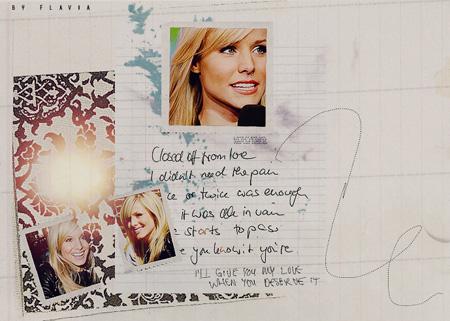 BY FLAVIA
Closed off from love
I didn't need the pain
or twice was enough
it was all in vain
starts to pass
you know it you're
I'LL GIVE YOU MY LOVE
WHEN YOU DESERVE IT